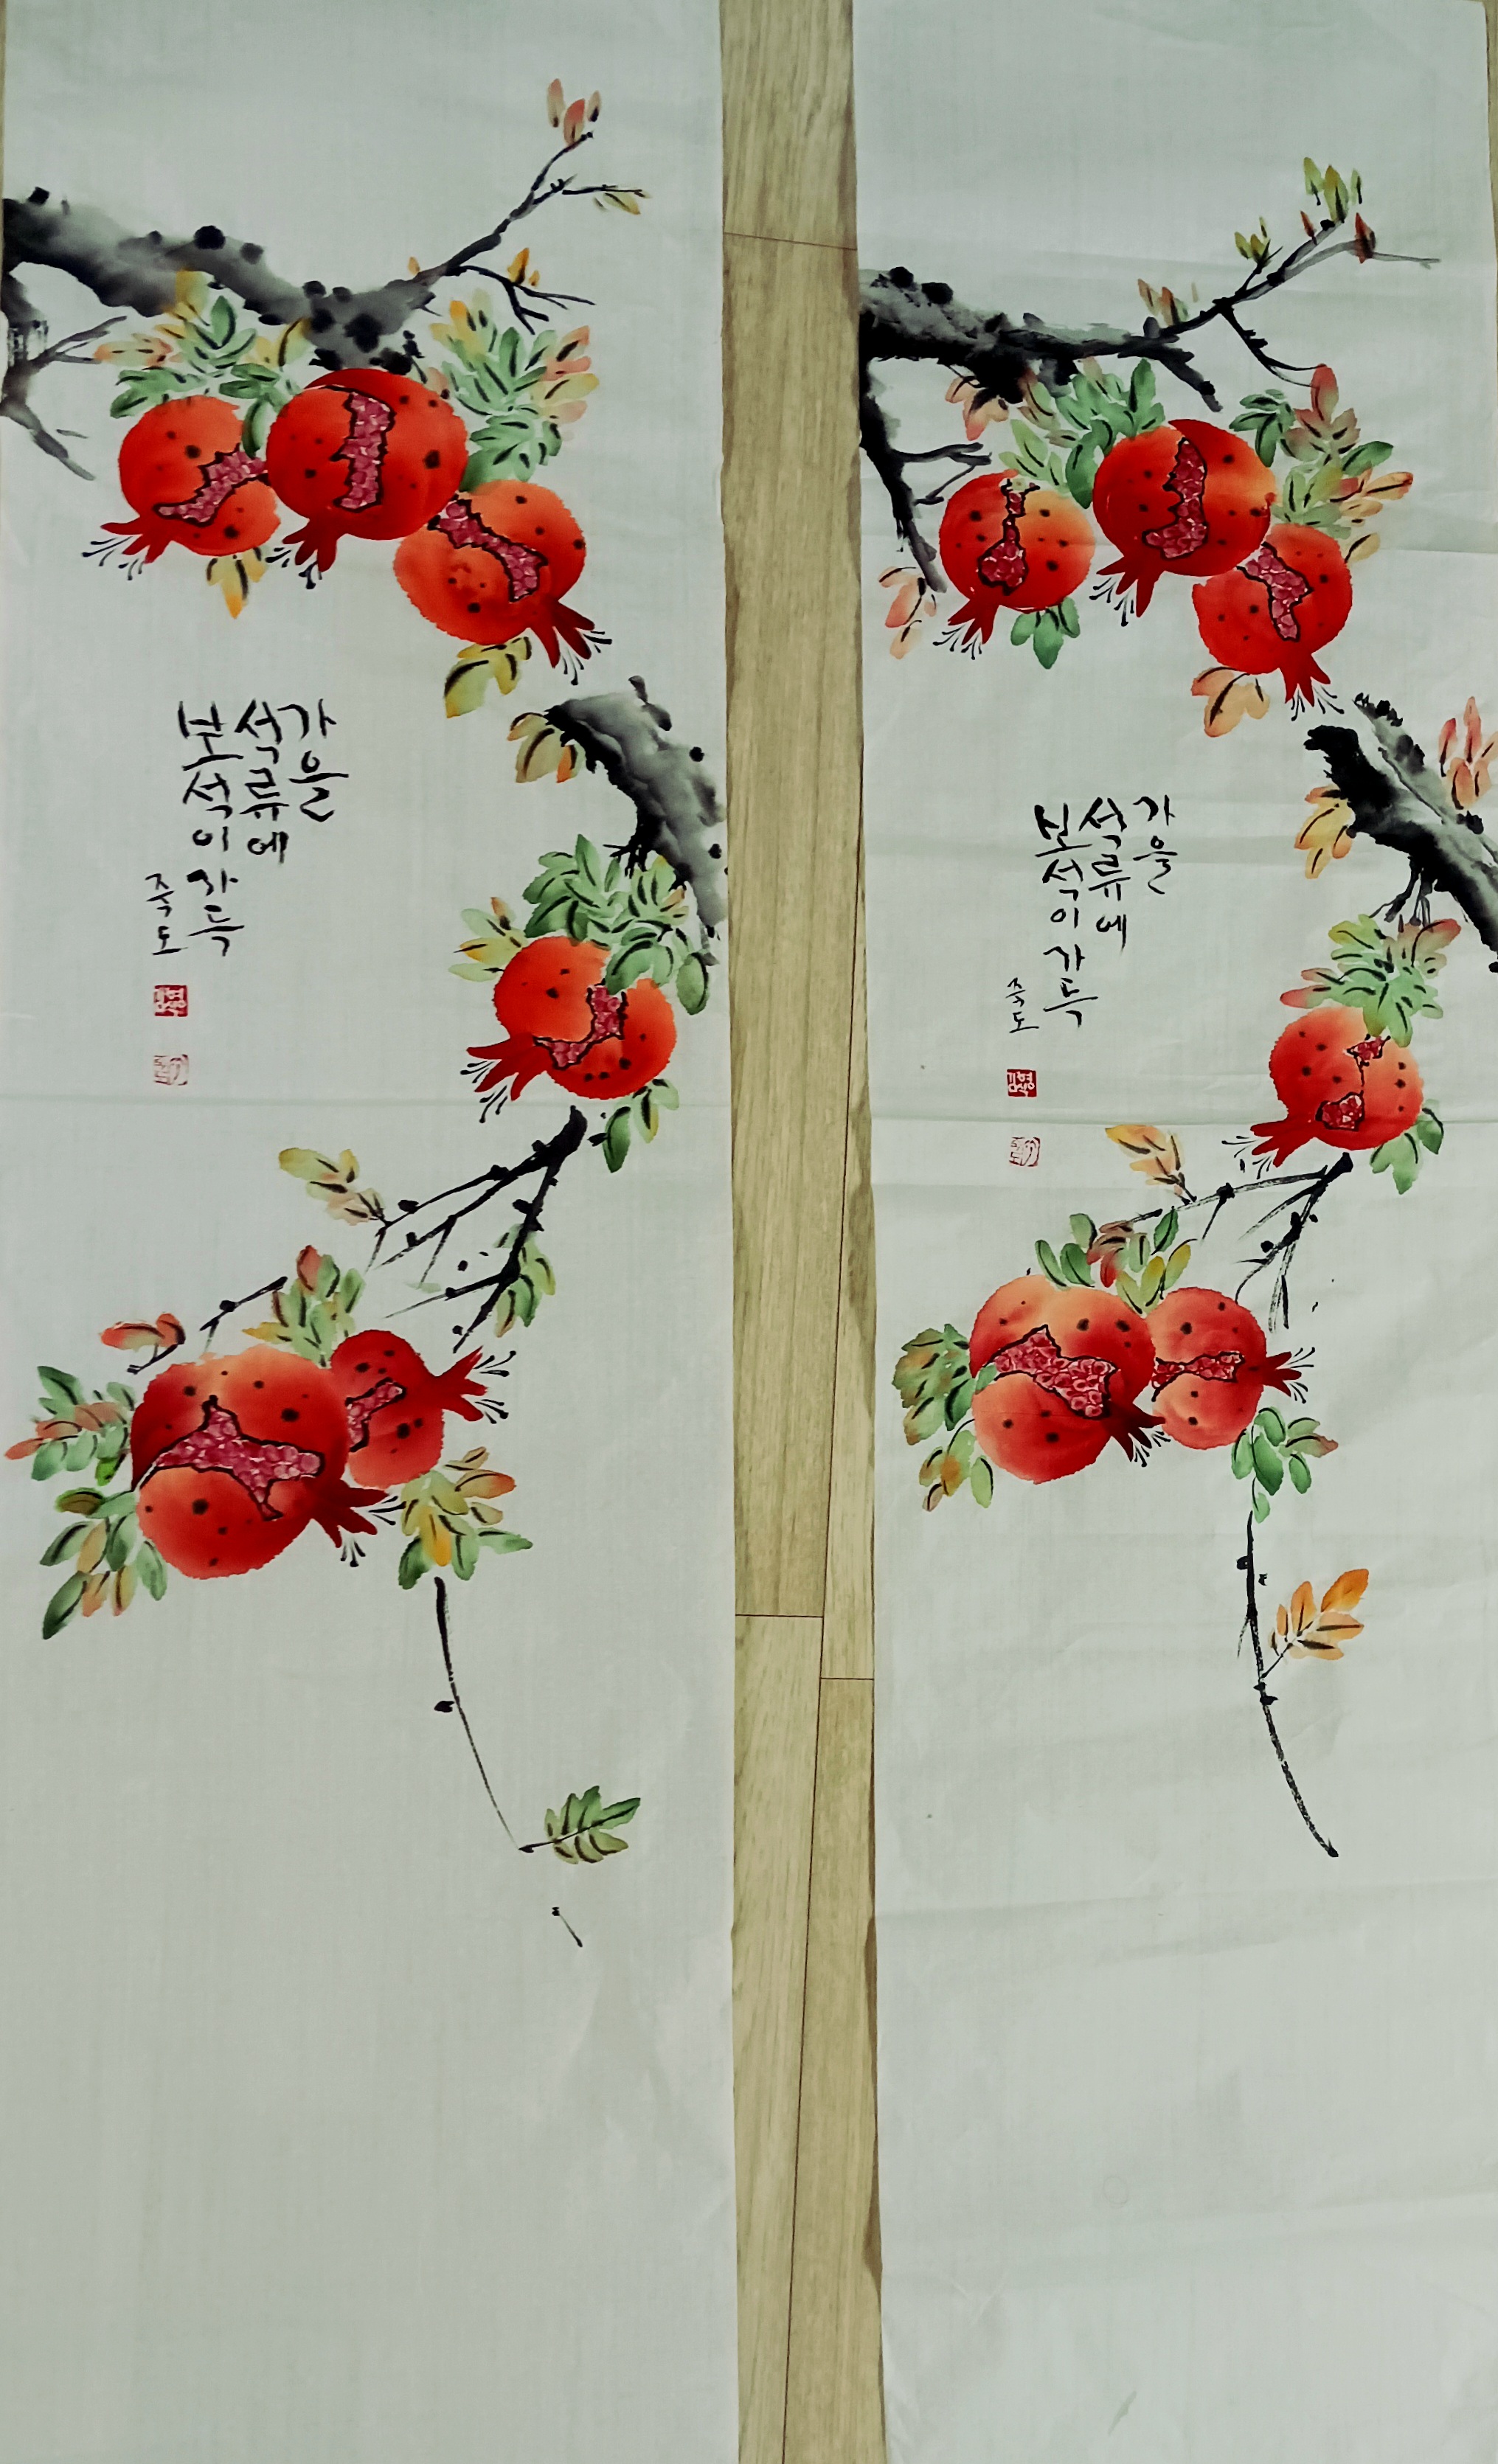 가을
석류에
보석이 가득
죽도
가을
석류에
보석이 가득
죽도